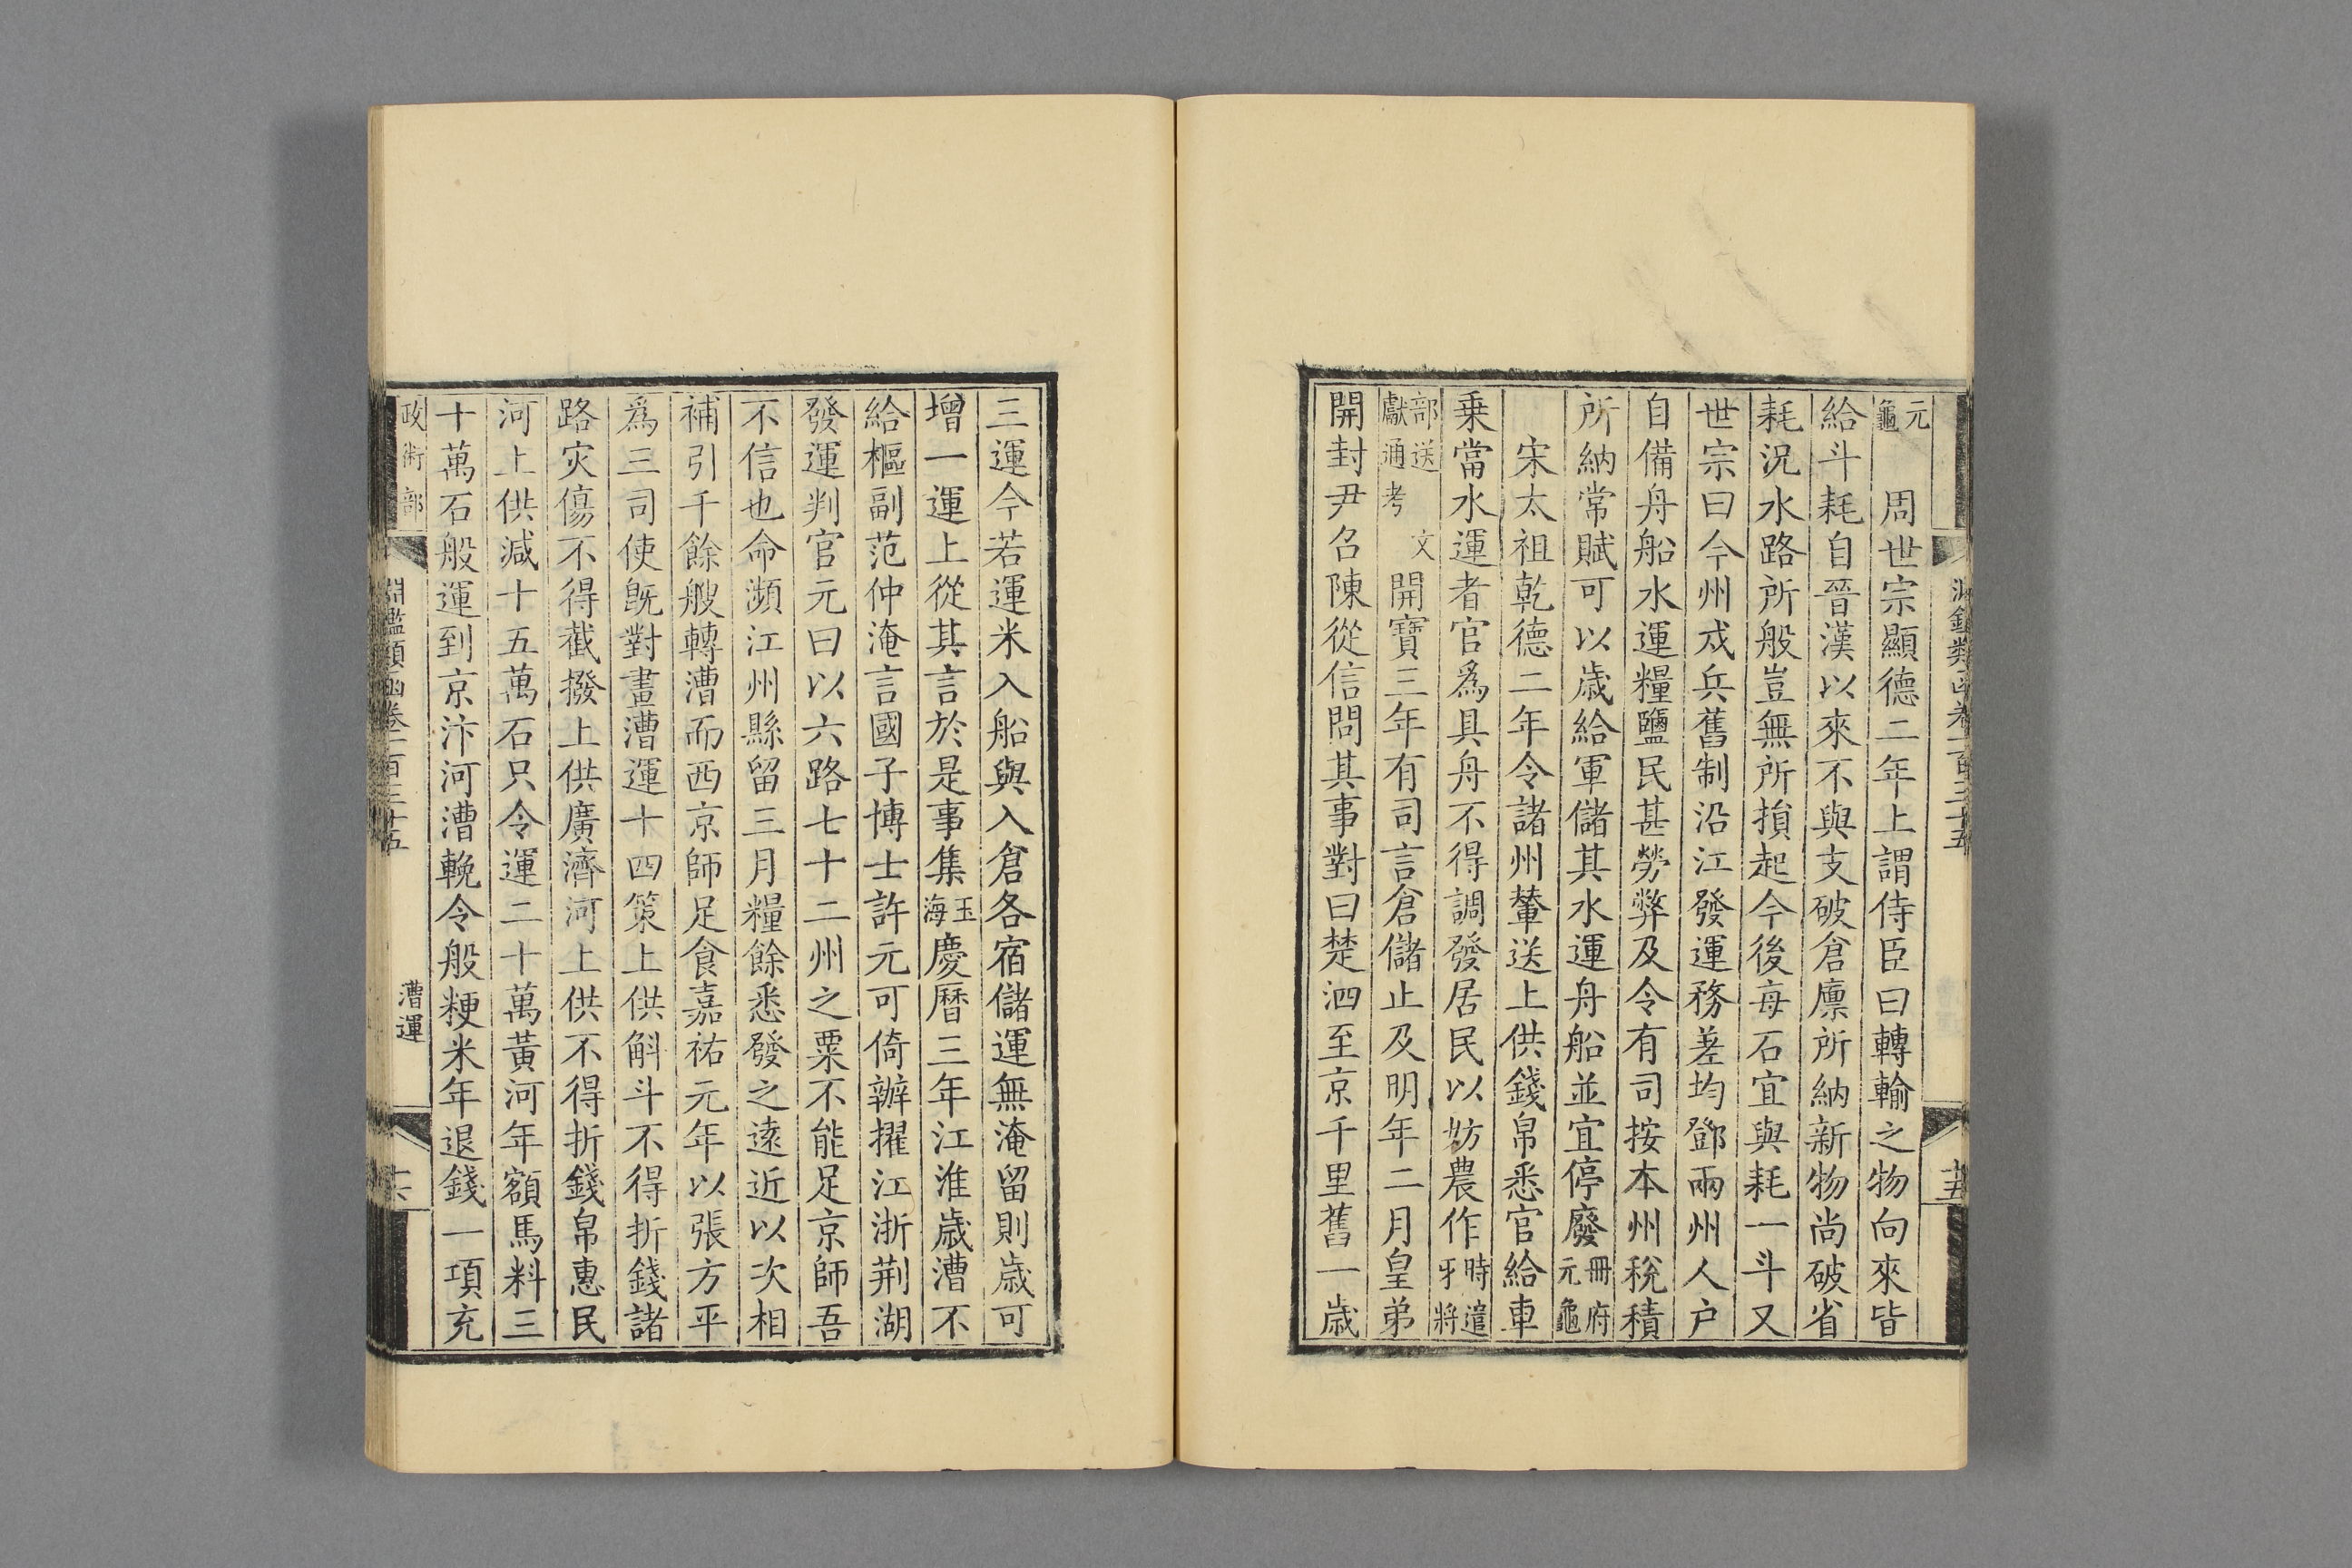 淵鑑類函卷一百三十五
十五
元龜　周世宗顯德二年上謂侍臣曰轉輸之物向來皆
給斗耗自晉漢以來不與支破倉廪所納新物尚破省
耗況水路所般豈無所損起今後每石宜與耗一斗又
世宗曰今州戍兵舊制沿江發運務差均鄧兩州人户
自備舟船水運糧鹽民甚勞弊及令有司按本州稅積
所納常賦可以歲給軍儲其水運舟船並宜停廢冊府元龜
宋太祖乾德二年令諸州輦送上供錢帛悉官給車
乗當水運者官爲具舟不得調發居民以妨農作時遣牙將
部送　文獻通考開寶三年有司言倉儲止及明年二月皇弟
開封尹召陳從信問其事對曰楚泗至京千里舊一歲
三運今若運米入船與入倉各宿儲運無淹留則歲可
增一運上從其言於是事集玉海慶曆三年江淮歲漕不
給樞副范仲淹言國子博士許元可倚辦擢江浙荆湖
發運判官元曰以六路七十二州之粟不能足京師吾
不信也命瀕江州縣留三月糧餘悉發之遠近以次相
補引千餘艘轉漕而西京師足食嘉祐元年以張方平
爲三司使旣對畫漕運十四策上供斛斗不得折錢諸
路灾傷不得截撥上供廣濟河上供不得折錢帛惠民
河上供減十五萬石只令運二十萬黃河年額馬料三
十萬石般運到京汴河漕輓令般粳米年退錢一項充
政術部
淵鑑類函卷一百三十五
漕運
十六